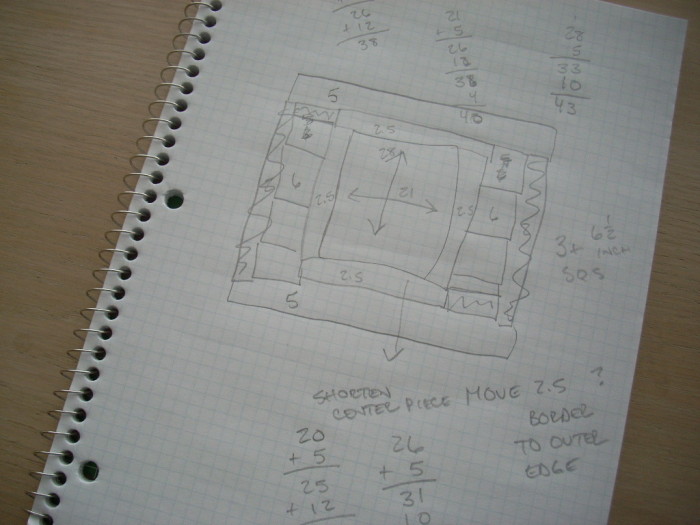 26
+ 12
38
21
+ 5
26
18
38
4
40
1
28
5
33
10
43
5
2.5
28
6
2.5
21
2.5
6
2.5
5
3+ 6 1/2
INCH
SQS
SHORTEN
CENTER PIECE MOVE 2.5 ?
BORDER
TO OUTER
EDGE
20
+ 5
25
+ 12
26
+ 5
31
10